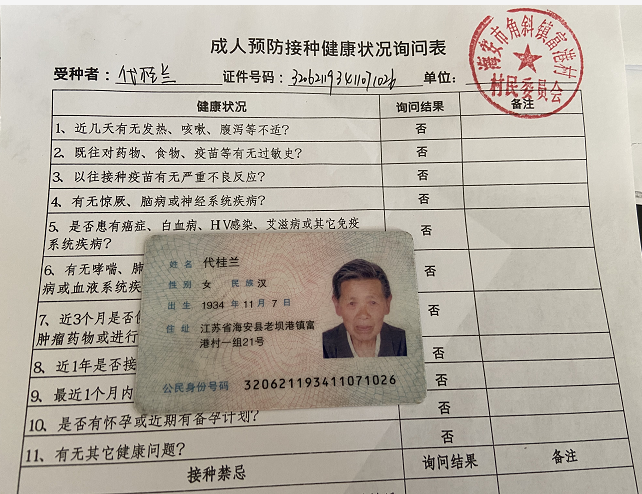 成人预防接种健康状况询问表
海安市角斜镇富港村
村民委员会
受种者：代桂兰 证件号码：320621193411071026 单位：
健康状况 询问结果 备注
1、近几天有无发热、咳嗽、腹泻等不适？ 否
2、既往对药物、食物、疫苗等有无过敏史？ 否
3、以往接种疫苗有无严重不良反应？ 否
4、有无惊厥、脑病或神经系统疾病？ 否
5、是否患有癌症、白血病、HIV感染、艾滋病或其它免疫 否
系统疾病？
6、有无哮喘、肺 否
病或血液系统疾
7、近3个月是否使 否
肿瘤药物或进行
8、近1年是否接 否
9、最近1个月内 否
10、是否有怀孕或近期有备孕计划？ 否
11、有无其它健康问题？ 否
接种禁忌 询问结果 备注
姓名 代桂兰
性别 女 民族 汉
出生 1934 年 11 月 7 日
住址 江苏省海安县老坝港镇富
港村一组21号
公民身份号码 320621193411071026